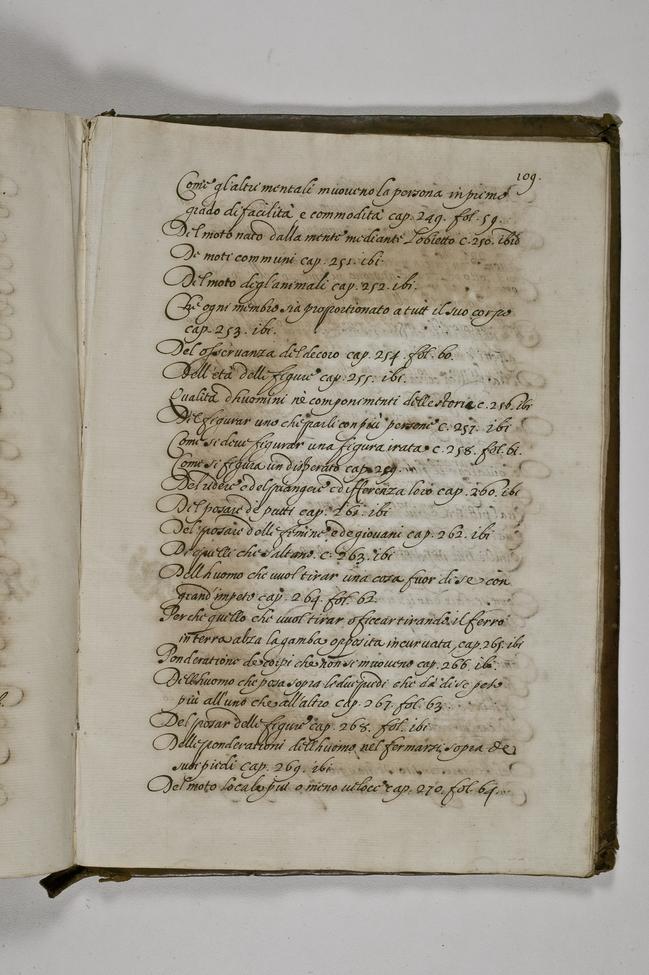 109.
Come gl'altri mentali muoveno la persona in primo
grado di facilità e commodità cap. 249. fol. 59.
Del moto nato dalla mente mediante l'obietto c. 250. ibid
De moti communi cap. 251. ibi.
Del moto degl'animali cap. 252. ibi.
Che ogni membro sia proportionato a tutt il suo corpo
cap. 253. ibi.
Del osservanza del decoro cap. 254. fol. 60.
Dell'età delle figure cap. 255. ibi.
Qualità d'huomini nè componimenti delle storie c. 256. ibi
Del figurar uno che parli con più persone c. 257. ibi
Come si deve figurar una figura irata c. 258. fol. 61.
Come si figura un disperato cap. 259.
Del ridere e del piangere e differenza loro cap. 260. ibi
Del posare de putti cap. 261. ibi
Del posare delle femine e de giovani cap. 262. ibi
Di quelli che saltano c. 263. ibi
Dell huomo che vuol tirar una cosa fuor di se con
grand'impeto cap. 264. fol. 62.
Perche quello che vuol tirar o ficcar tirando il ferro
in terra alza la gamba opposita incurvata cap. 265. ibi
Ponderatione de corpi che non si muoveno cap. 266. ibi.
Dell huomo che posa sopra le due piedi che dà di se peso
più all'uno che all'altro cap. 267. fol. 63.
Del posar delle figure cap. 268. fol. ibi
Delle ponderationi dell huomo nel fermarsi sopra de
suoi piedi cap. 269. ibi
Del moto locale più o meno veloce cap. 270. fol. 64.